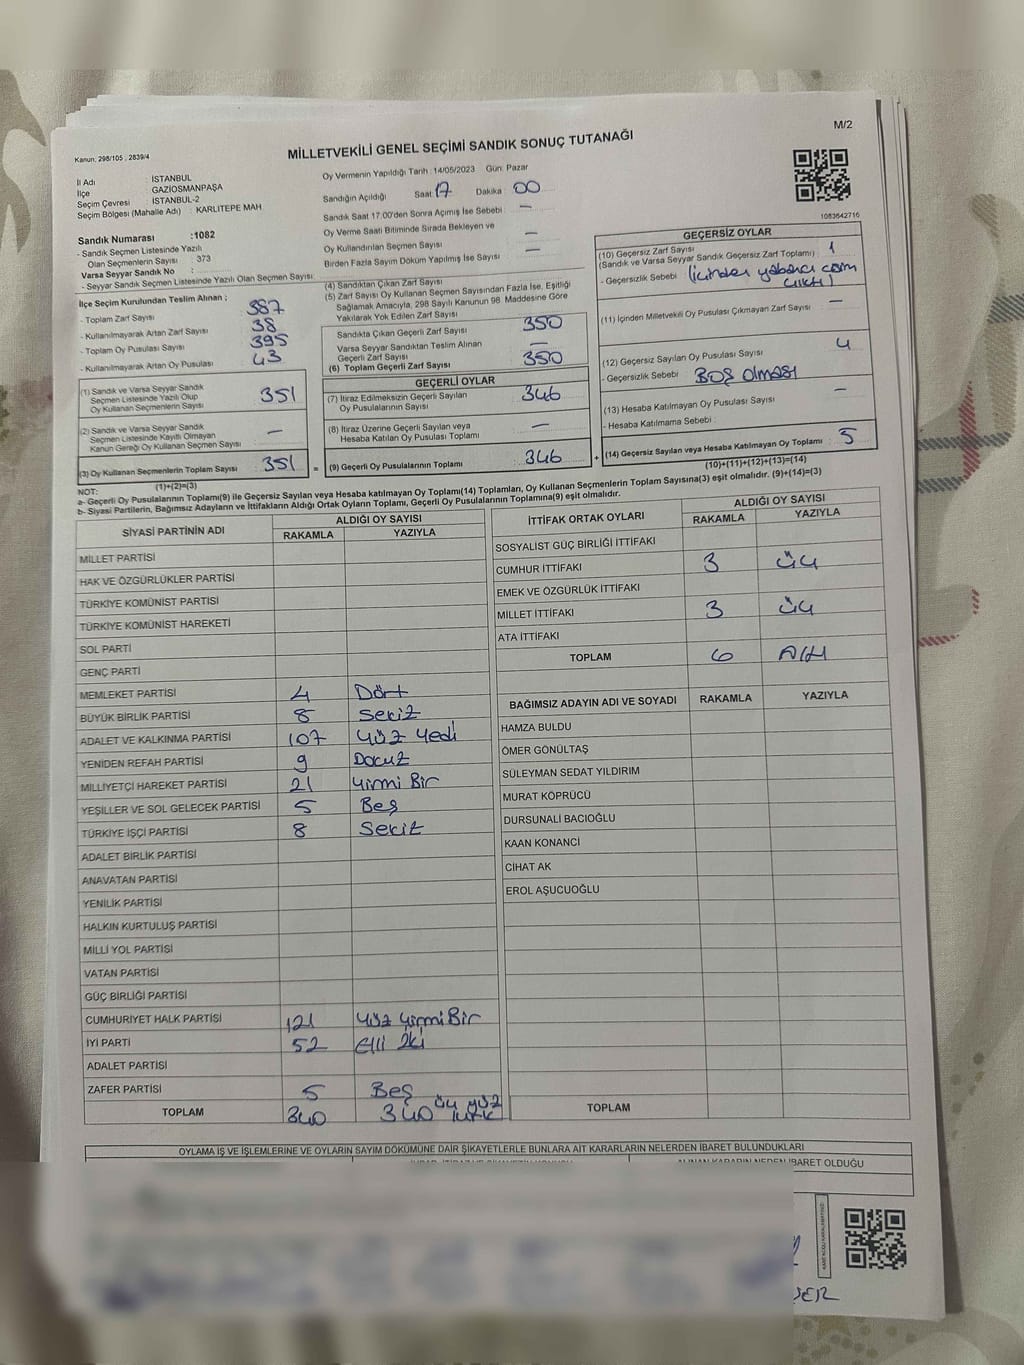 M/2
Kanun: 298/105 , 2839/4
MİLLETVEKİLİ GENEL SEÇİMİ SANDIK SONUÇ TUTANAĞI
İl Adı : İSTANBUL
İlçe : GAZİOSMANPAŞA
Seçim Çevresi : İSTANBUL-2
Seçim Bölgesi (Mahalle Adı) : KARLITEPE MAH.
Sandık Numarası :1082
- Sandık Seçmen Listesinde Yazılı
Olan Seçmenlerin Sayısı : 373
Varsa Seyyar Sandık No :
- Seyyar Sandık Seçmen Listesinde Yazılı Olan Seçmen Sayısı :
Oy Vermenin Yapıldığı Tarih :14/05/2023 Gün: Pazar
Sandığın Açıldığı Saat 17 Dakika 00
Sandık Saat 17.00'den Sonra Açımış İse Sebebi —
Oy Verme Saati Bitiminde Sırada Bekleyen ve
Oy Kullandırılan Seçmen Sayısı —
Birden Fazla Sayım Döküm Yapılmış İse Sayısı —
1083642716
İlçe Seçim Kurulundan Teslim Alınan ;
- Toplam Zarf Sayısı 387
- Kullanılmayarak Artan Zarf Sayısı 38
- Toplam Oy Pusulası Sayısı 395
- Kullanılmayarak Artan Oy Pusulası 43
(1) Sandık ve Varsa Seyyar Sandık
Seçmen Listesinde Yazılı Olup
Oy Kullanan Seçmenlerin Sayısı 351
(2) Sandık ve Varsa Seyyar Sandık
Seçmen Listesinde Kayıtlı Olmayan
Kanun Gereği Oy Kullanan Seçmen Sayısı —
(3) Oy Kullanan Seçmenlerin Toplam Sayısı 351 =
(1)+(2)=(3)
(4) Sandıktan Çıkan Zarf Sayısı
(5) Zarf Sayısı Oy Kullanan Seçmen Sayısından Fazla İse, Eşitliği
Sağlamak Amacıyla, 298 Sayılı Kanunun 98. Maddesine Göre
Yakılarak Yok Edilen Zarf Sayısı
Sandıkta Çıkan Geçerli Zarf Sayısı 350
Varsa Seyyar Sandıktan Teslim Alınan
Geçerli Zarf Sayısı —
(6) Toplam Geçerli Zarf Sayısı 350
GEÇERLİ OYLAR
(7) İtiraz Edilmeksizin Geçerli Sayılan
Oy Pusulalarının Sayısı 346
(8) İtiraz Üzerine Geçerli Sayılan veya
Hesaba Katılan Oy Pusulası Toplamı —
(9) Geçerli Oy Pusulalarının Toplamı 346 +
GEÇERSİZ OYLAR
(10) Geçersiz Zarf Sayısı
(Sandık ve Varsa Seyyar Sandık Geçersiz Zarf Toplamı) 1
- Geçersizlik Sebebi (İçinden yabancı cisim
çıktı)
(11) İçinden Milletvekili Oy Pusulası Çıkmayan Zarf Sayısı —
(12) Geçersiz Sayılan Oy Pusulası Sayısı 4
- Geçersizlik Sebebi Boş olması
(13) Hesaba Katılmayan Oy Pusulası Sayısı —
- Hesaba Katılmama Sebebi :
(14) Geçersiz Sayılan veya Hesaba Katılmayan Oy Toplamı 5
(10)+(11)+(12)+(13)=(14)
NOT:
a- Geçerli Oy Pusulalarının Toplamı(9) ile Geçersiz Sayılan veya Hesaba katılmayan Oy Toplamı(14) Toplamları, Oy Kullanan Seçmenlerin Toplam Sayısına(3) eşit olmalıdır. (9)+(14)=(3)
b- Siyasi Partilerin, Bağımsız Adayların ve İttifakların Aldığı Ortak Oyların Toplamı, Geçerli Oy Pusulalarının Toplamına(9) eşit olmalıdır.
SİYASİ PARTİNİN ADI ALDIĞI OY SAYISI
RAKAMLA YAZIYLA
MİLLET PARTİSİ
HAK VE ÖZGÜRLÜKLER PARTİSİ
TÜRKİYE KOMÜNİST PARTİSİ
TÜRKİYE KOMÜNİST HAREKETİ
SOL PARTİ
GENÇ PARTİ
MEMLEKET PARTİSİ 4 Dört
BÜYÜK BİRLİK PARTİSİ 8 Sekiz
ADALET VE KALKINMA PARTİSİ 107 Yüz Yedi
YENİDEN REFAH PARTİSİ 9 Dokuz
MİLLİYETÇİ HAREKET PARTİSİ 21 Yirmi Bir
YEŞİLLER VE SOL GELECEK PARTİSİ 5 Beş
TÜRKİYE İŞÇİ PARTİSİ 8 Sekiz
ADALET BİRLİK PARTİSİ
ANAVATAN PARTİSİ
YENİLİK PARTİSİ
HALKIN KURTULUŞ PARTİSİ
MİLLİ YOL PARTİSİ
VATAN PARTİSİ
GÜÇ BİRLİĞİ PARTİSİ
CUMHURİYET HALK PARTİSİ 121 Yüz Yirmi Bir
İYİ PARTİ 52 Elli İki
ADALET PARTİSİ
ZAFER PARTİSİ 5 Beş
TOPLAM 340 340 üç yüz kırk
İTTİFAK ORTAK OYLARI ALDIĞI OY SAYISI
RAKAMLA YAZIYLA
SOSYALİST GÜÇ BİRLİĞİ İTTİFAKI
CUMHUR İTTİFAKI 3 üç
EMEK VE ÖZGÜRLÜK İTTİFAKI
MİLLET İTTİFAKI 3 üç
ATA İTTİFAKI
TOPLAM 6 Altı
BAĞIMSIZ ADAYIN ADI VE SOYADI RAKAMLA YAZIYLA
HAMZA BULDU
ÖMER GÖNÜLTAŞ
SÜLEYMAN SEDAT YILDIRIM
MURAT KÖPRÜCÜ
DURSUNALİ BACIOĞLU
KAAN KONANCİ
CİHAT AK
EROL AŞUCUOĞLU
TOPLAM
OYLAMA İŞ VE İŞLEMLERİNE VE OYLARIN SAYIM DÖKÜMÜNE DAİR ŞİKAYETLERLE BUNLARA AİT KARARLARIN NELERDEN İBARET BULUNDUKLARI
ALINAN KARARIN NEDEN İBARET OLDUĞU